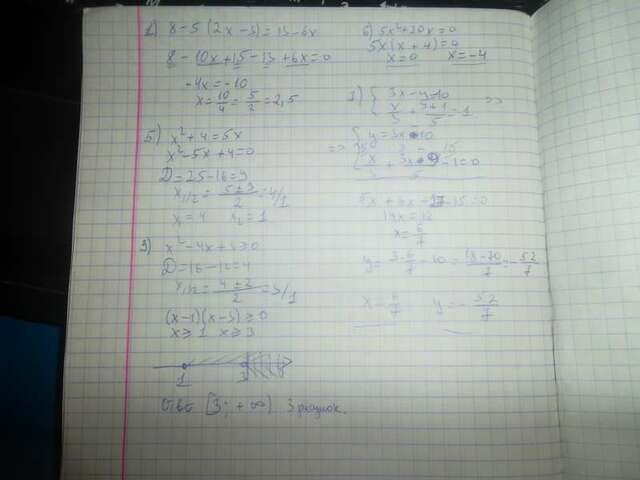 1) 8-5(2x-3)=13-6x
8-10x+15-13+6x=0
-4x=-10
x=10/4=5/2=2,5
5) x²+4=5x
x²-5x+4=0
D=25-16=9
x1/2=(5±3)/2=4/1
x1=4 x2=1
3) x²-4x+3≥0
D=16-12=4
x1/2=(4±2)/2=3/1
(x-1)(x-3)≥0
x≥1 x≥3
1 3
Ответ [3; +∞) 3 рисунок.
6) 5x²+20x=0
5x(x+4)=0
x=0 x=-4
{ 3x-y=10
=>
=> { y=3x-10
14x=12
x=6/7
y=3·6/7-10=(18-70)/7=-52/7
x=6/7 y=-52/7